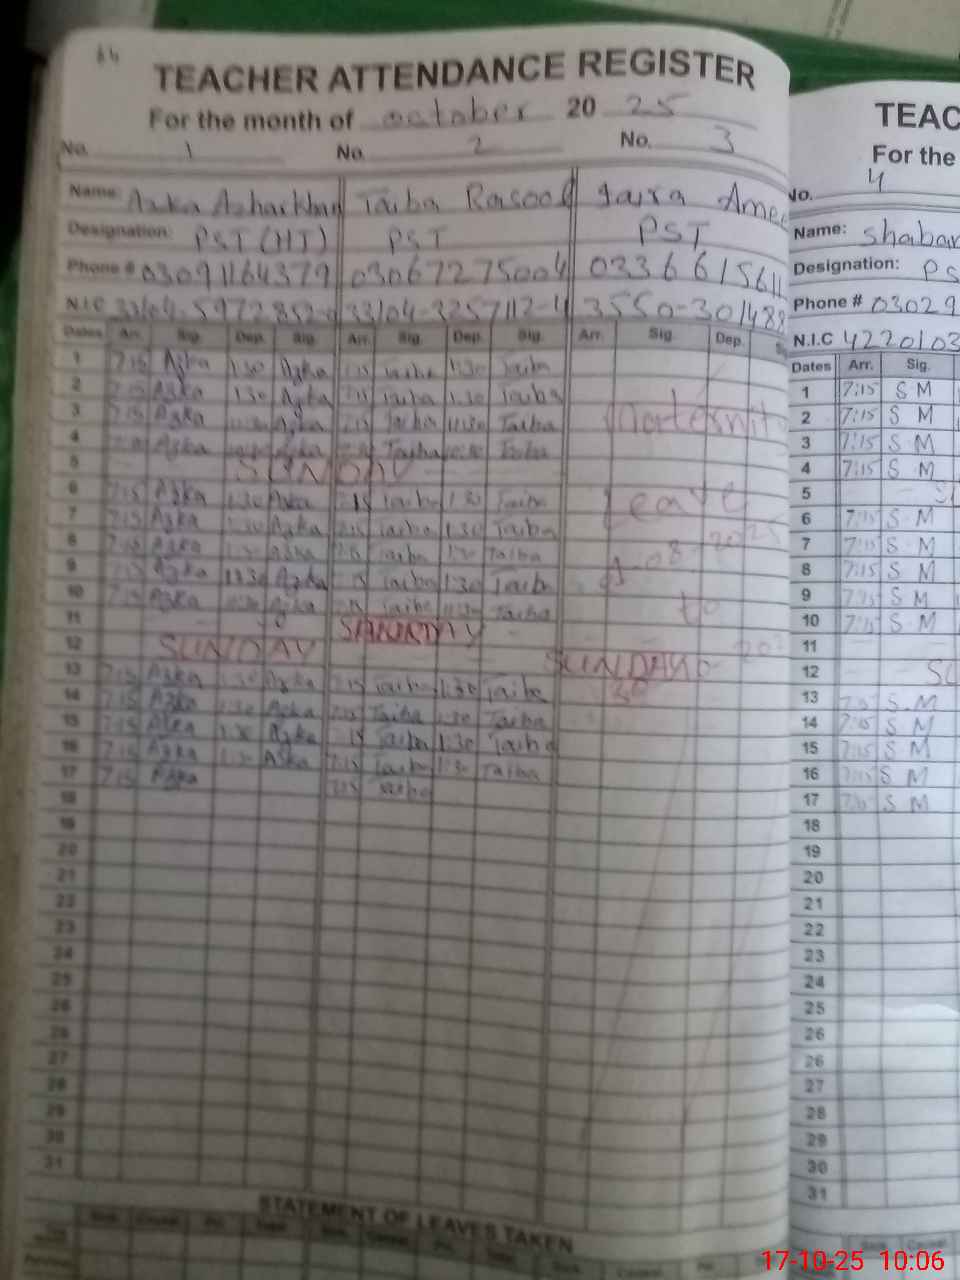 64
TEACHER ATTENDANCE REGISTER
For the month of october 20 25
No. 1 No. 2 No. 3
Name: Azka Azharkhan Taiba Rasool Ame
Designation: PST (HT) PST PST
Phone # 03091164379 03067275004 03366615611
N.I.C 33104-5972852- 33104-3257112-4 3550-301488
Dates Arr. Sig. Dep. Sig. Arr. Sig. Dep. Sig. Arr. Sig. Dep.
1 7:15 Azka 1:30 Azka 7:15 Taiba 1:30 Taiba
2 7:15 Azka 1:30 Azka 7:15 Taiba 1:30 Taiba
3 7:15 Azka Azka 7:15 Taiba 1:30 Taiba
4 Azka Azka Taiba Taiba
5 SUNDAY
6 7:15 Azka 1:30 Azka 7:15 Taiba 1:30 Taiba
7 7:15 Azka 1:30 Azka 7:15 Taiba 1:30 Taiba
8 7:15 Azka Azka 7:15 Taiba 1:30 Taiba
9 7:15 Azka 1:30 Azka 7:15 Taiba 1:30 Taiba
10 7:15 Azka Azka 7:15 Taiba 1:30 Taiba
11
12 SUNDAY SUNDAY
13 7:15 Azka 1:30 Azka 7:15 Taiba 1:30 Taiba
14 7:15 Azka 1:30 Azka 7:15 Taiba 1:30 Taiba
15 7:15 Azka 1:30 Azka 7:15 Taiba 1:30 Taiba
16 7:15 Azka 1:30 Azka 7:15 Taiba 1:30 Taiba
17 7:15 Azka 7:15 Taiba
18
19
20
21
22
23
24
25
26
26
27
28
29
30
31
Maternit
leave
to
STATEMENT OF LEAVES TAKEN
TEAC
For the
No. 4
Name: Shaban
Designation: PS
Phone # 03029
N.I.C 4220103
Dates Arr. Sig.
1 7:15 S M
2 7:15 S M
3 7:15 S M
4 7:15 S M
5
6 7:15 S M
7 7:15 S M
8 7:15 S M
9 7:15 S M
10 7:15 S M
11
12 SU
13 7:15 S M
14 7:15 S M
15 7:15 S M
16 7:15 S M
17 S M
18
19
20
21
22
23
24
25
26
26
27
28
29
30
31
17-10-25 10:06